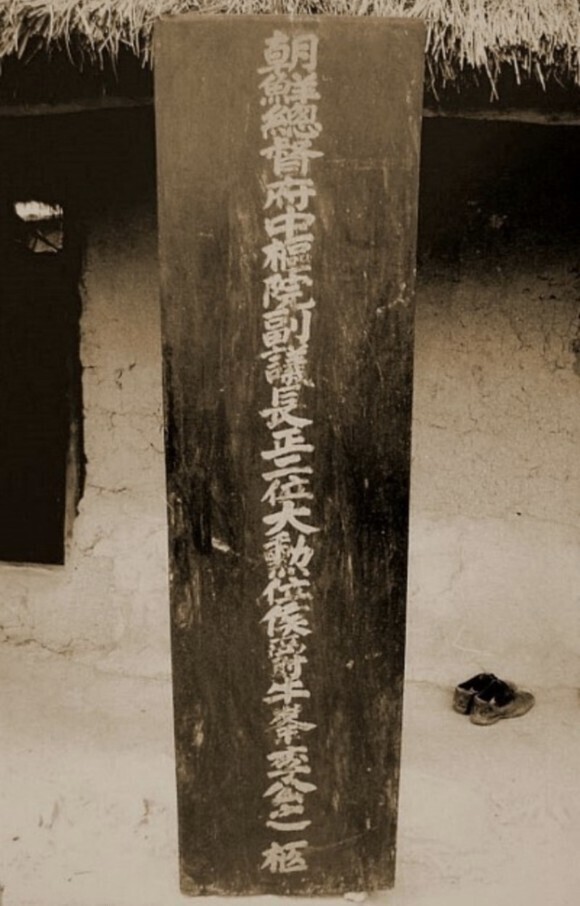 朝鮮總督府中樞院副議長正二位大勳位侯爵牛峯李公之柩